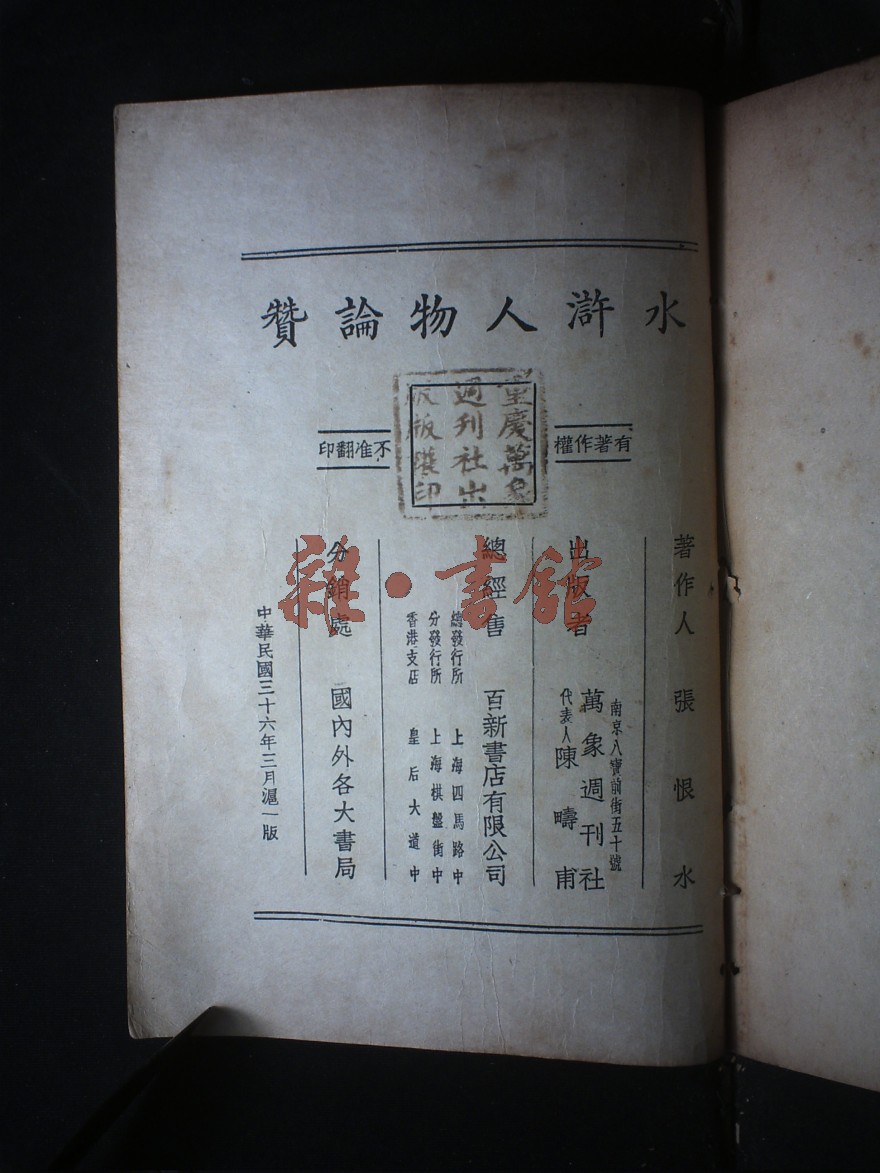 水滸人物論贊
有著作權
不准翻印
重慶萬象
週刊社出
版版權印
著作人 張恨水
出版者
南京八寶前街五十號
萬象週刊社
代表人 陳疇甫
總經售 百新書店有限公司
總發行所 上海四馬路中
分發行所 上海棋盤街中
香港支店 皇后大道中
分銷處 國內外各大書局
中華民國三十六年三月滬一版
雜·書館